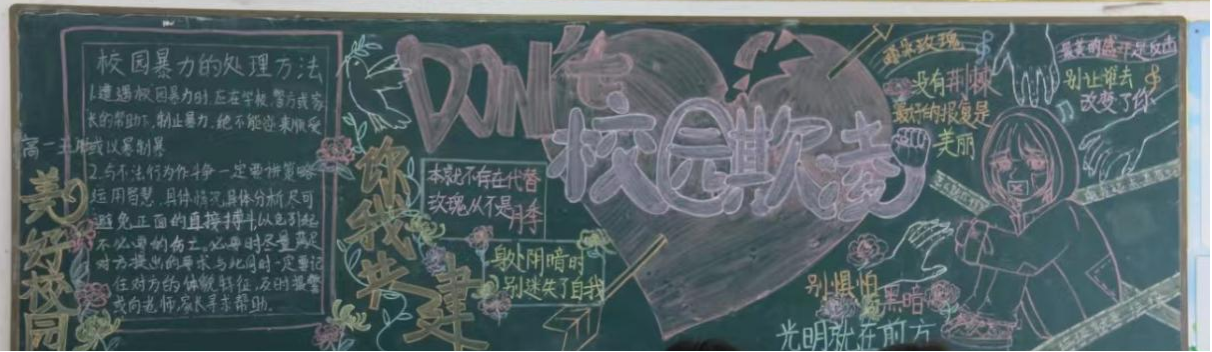 校园暴力的处理方法
1.遭遇校园暴力时,应在学校、警方或家
长的帮助下,制止暴力,绝不能逆来顺受
或以暴制暴
2.与不法行为作斗争一定要讲策略
运用智慧,具体情况具体分析,尽可
避免正面的直接搏斗以免引起
不必要的伤亡。必要时尽量满足
对方提出的要求与此同时一定要记
住对方的体貌特征,及时报警
或向老师,家长寻求帮助。
高一五班
美好校园
你我共建
DON'T
校园欺凌
本就不存在代替
玫瑰从不是月季
身处阴暗时
别迷失了自我
玫瑰
没有荆棘
最好的报复是
美丽
最美的盛开是反击
别让谁去
改变了你
别惧怕
黑暗
光明就在前方